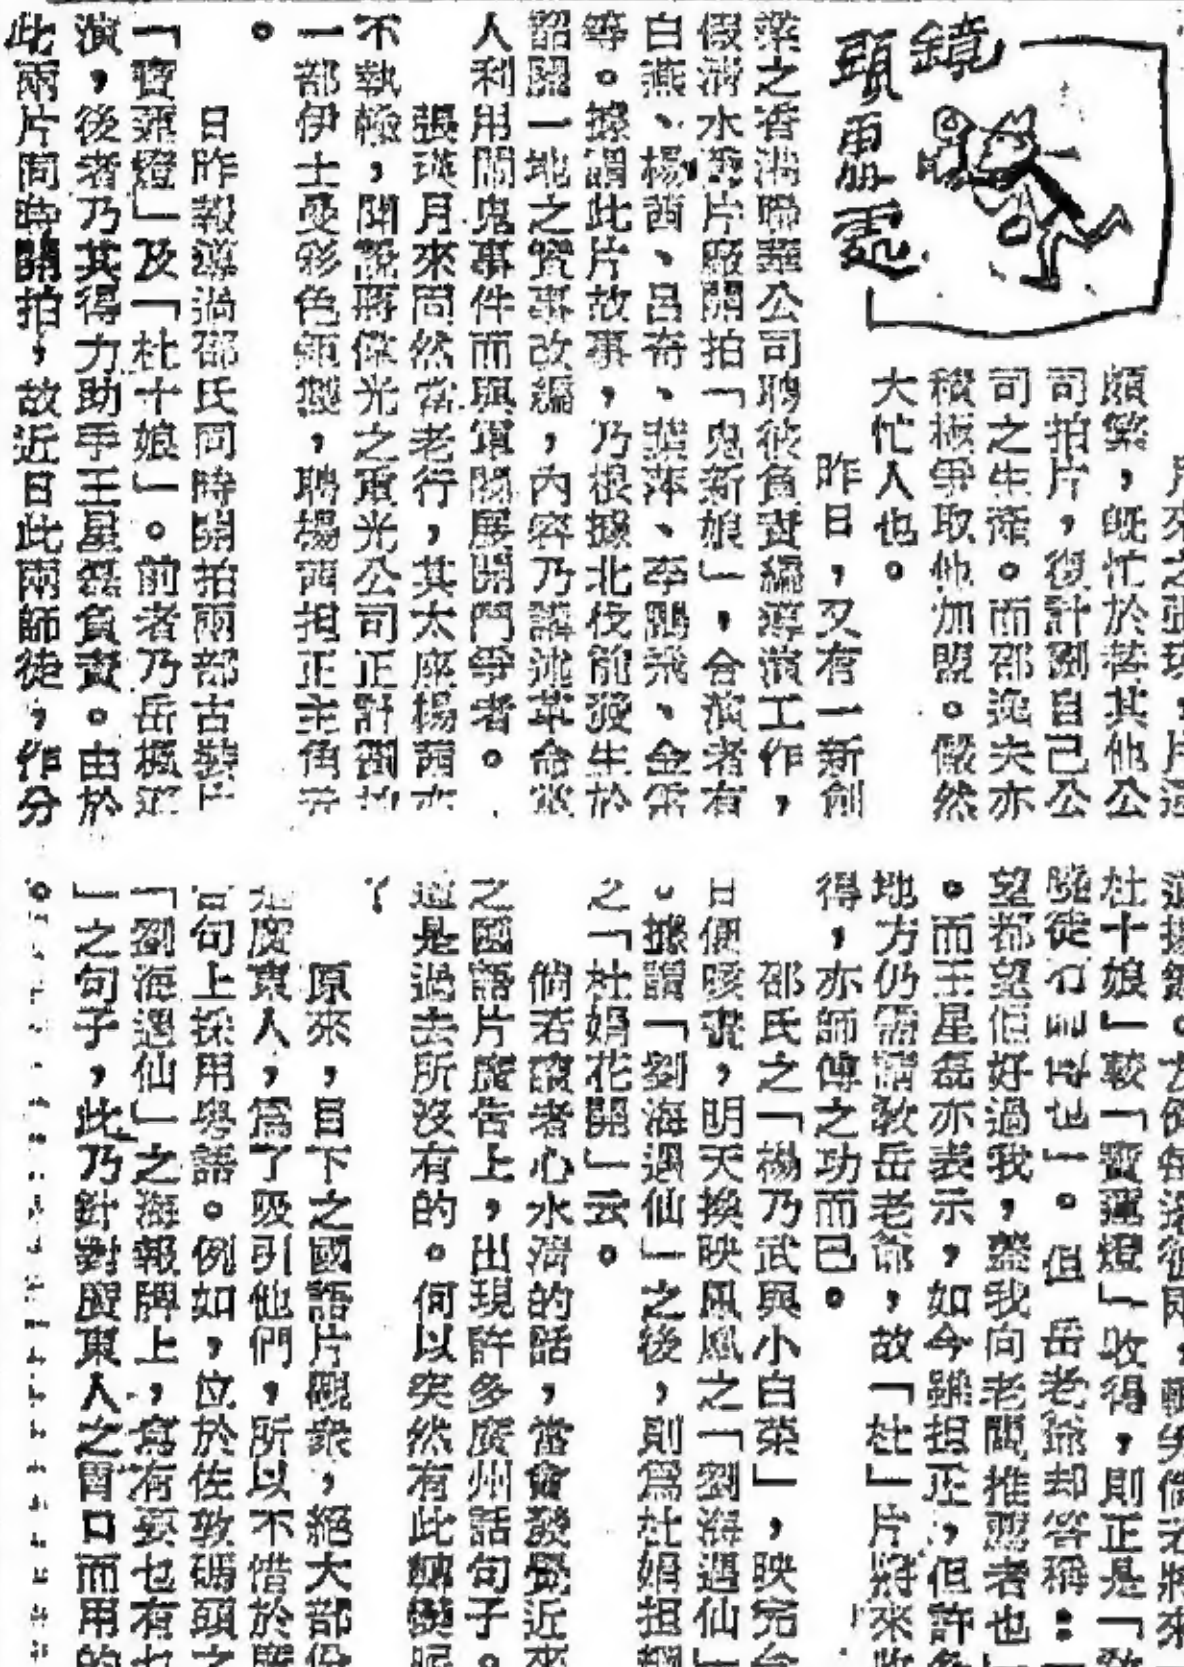 鏡頭
月來之張瑛,片
頗繁,旣忙於替其他公
司拍片,復計劃自己公
司之生產。而邵逸夫亦
積極爭取他加盟。儼然
大忙人也。
昨日,又有一新創
業之香港聯華公司聘彼負責編導演工作,
假淸水灣片廠開拍「鬼新娘」,合演者有
白燕、楊茜、呂奇、葉萍、李鵬飛、金雷
等。據謂此片故事,乃根據北伐前發生於
韶關一地之實事改編,內容乃講述革命黨
人利用鬧鬼事件而與軍閥展開鬥爭者。
張瑛月來固然當老行,其太座楊茜亦
不執輸,聞說蔣偉光之電光公司正計劃拍
一部伊士曼彩色鉅製,聘楊茜担正主角
。
日昨報導過邵氏同時開拍兩部古裝片
「寶蓮燈」及「杜十娘」。前者乃岳楓
演,後者乃其得力助手王星磊負責。由於
此兩片同時開拍,故近日此兩師徒,作分
杜十娘」較「寶蓮燈」收得,則正是「敎
曉徒冇師得也」。但岳老爺却答稱:「
望都望佢好過我,蓋我向老闆推薦者也」
。而王星磊亦表示,如今雖担正,但許多
地方仍需請敎岳老爺,故「杜」片將來收
得,亦師傅之功而已。
邵氏之「楊乃武與小白菜」,映完今
日便咳嗽,明天換映鳳凰之「劉海遇仙」
。據謂「劉海遇仙」之後,則爲杜娟担綱
之「杜娟花開」云。
倘若讀者心水淸的話,當會發覺近來
之國語片廣告上,出現許多廣州話句子。
這是過去所沒有的。何以突然有此轉變呢
?
原來,目下之國語片觀衆,絕大部份
是廣東人,爲了吸引他們,所以不惜於廣
告句上採用粵語。例如,位於佐敦碼頭之
「劉海遇仙」之海報牌上,寫有耍也有
」之句子,此乃針對廣東人之胃口而用的
。